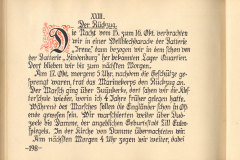 XXIII.
Der Rückzug.
Die Nacht vom 15. zum 16. Okt. verbrachten
wir in einer Wellblechbaracke der Batterie
„Irene“, dann bezogen wir in dem schon von
der Batterie „Hindenburg“ her bekannten Lager Quartier.
Dort blieben wir bis zum nächsten Morgen.
Am 17. Okt. morgens 3 Uhr, nachdem die Geschütze ge-
sprengt waren, trat das Marinekorps den Rückzug an.
Der Marsch ging über Snijskerke, dort sahen wir die Klof-
terschule wieder, worin wir 4 Jahre früher gelegen hatten.
Während des Marsches fielen die Engländer schon in Of-
ende gelandet sein. Wir marschierten weiter über Dud-
zeele bis Damme, der angeblichen Geburtsstadt Till Eulen-
spiegels. In der Kirche von Damme übernachteten wir.
Am nächsten Morgen 4 Uhr zogen wir weiter, dabei
-198-